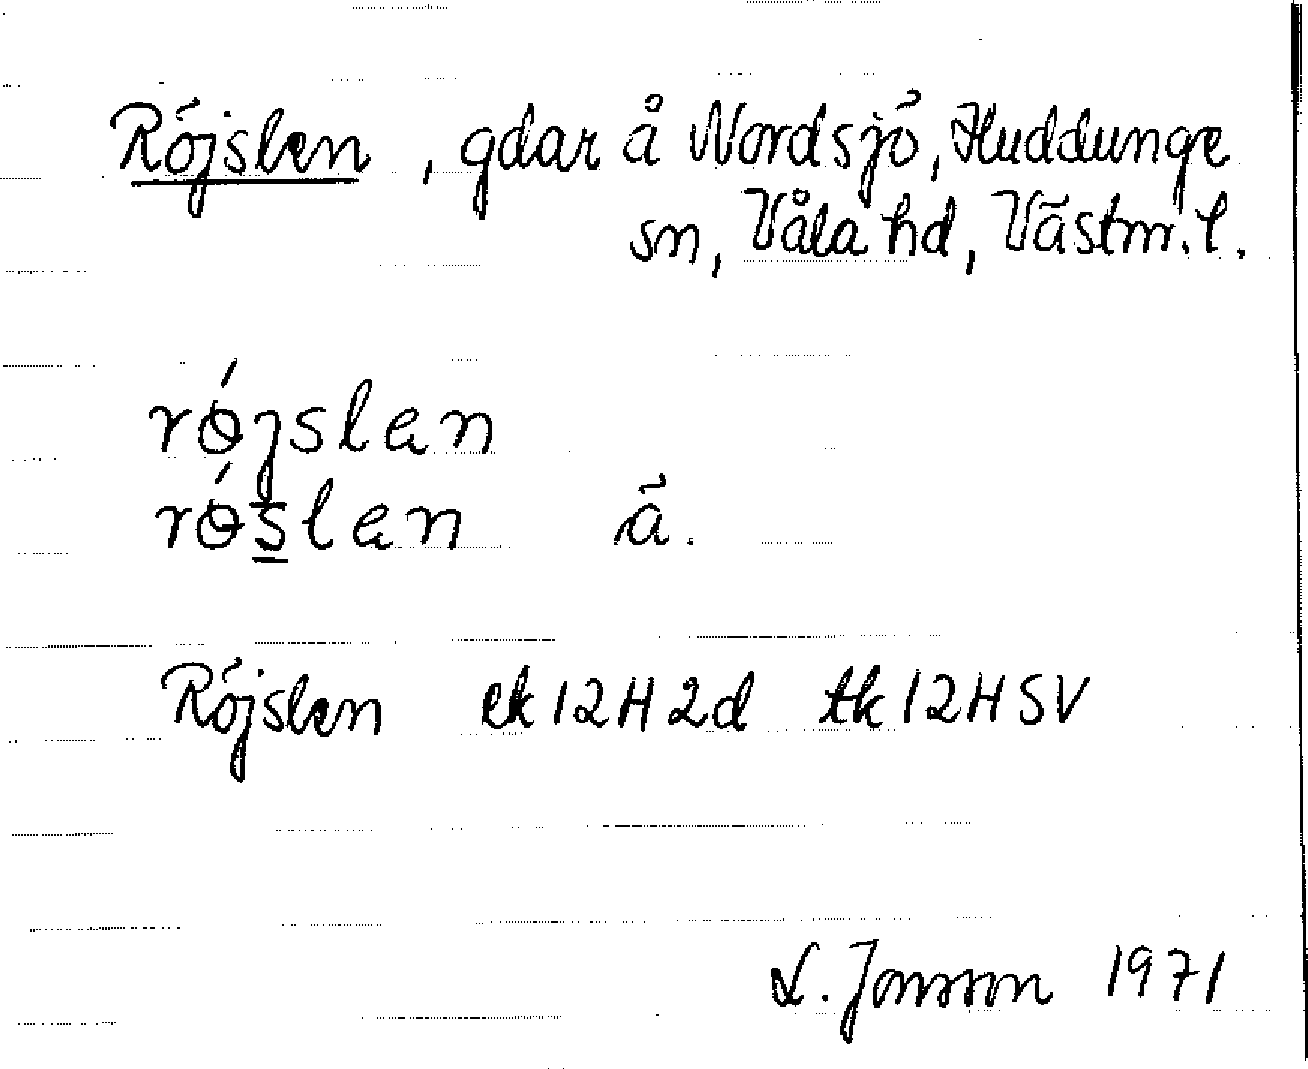 Röjslen, gdar å Nordsjö, Huddunge
sn, Våla hd, Västm. l.
rö́jslen
rö́slen ä.
Röjslen ek 12H2d tk 12HSV
L. Jonsson 1971